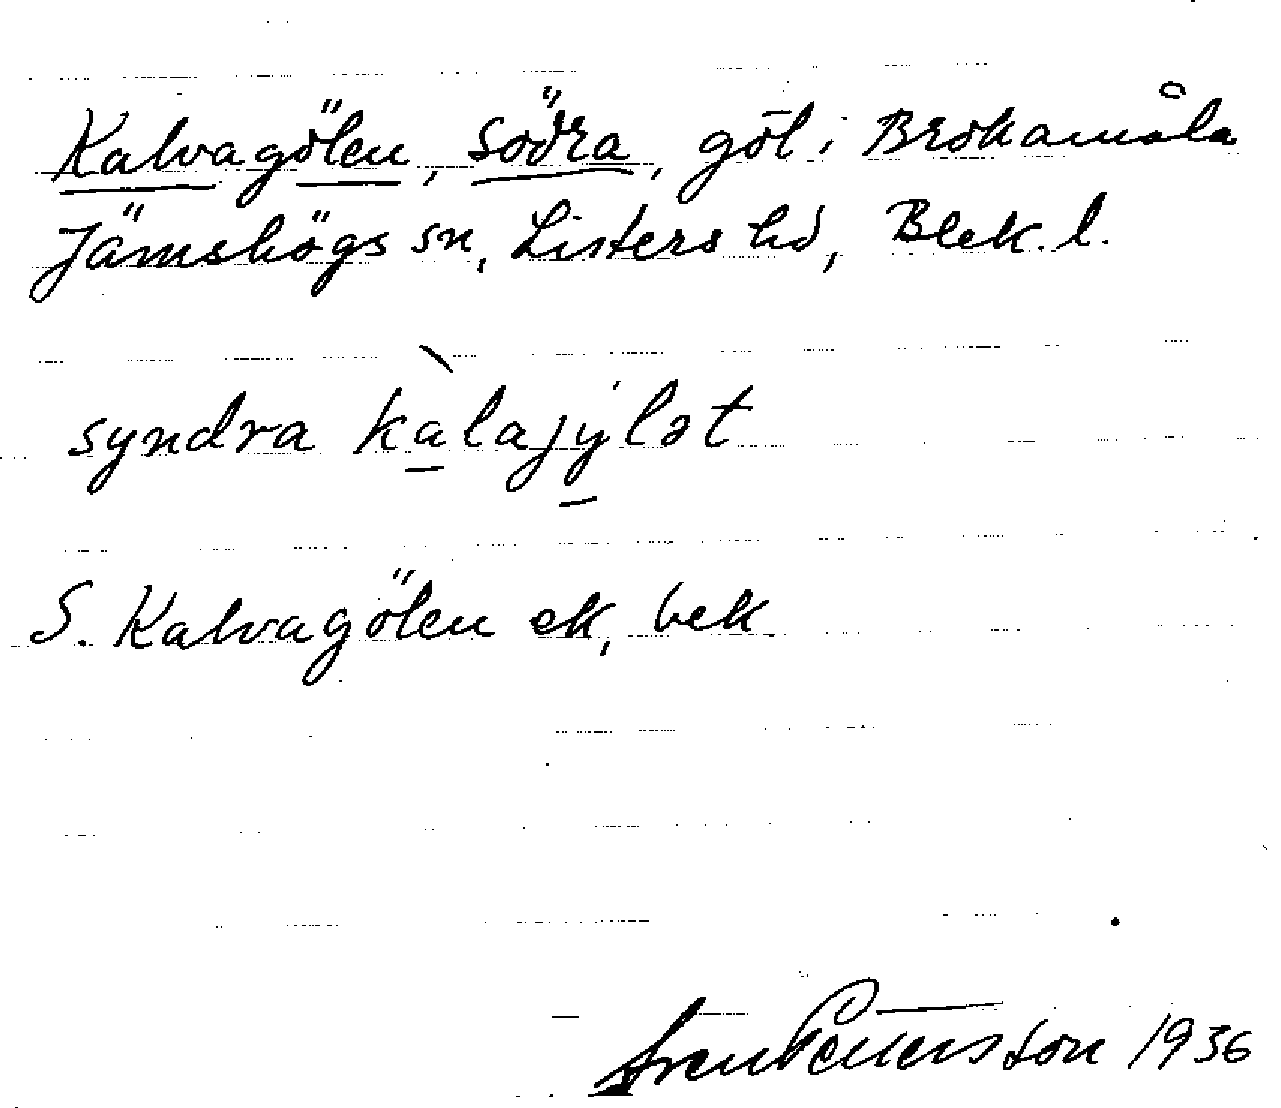 Kalvagölen, Södra, göl i Brokamåla
Jämshögs sn, Listers hd, Blek. l.
syndra kàlajýlət
S. Kalvagölen ek, bek
Sven Pettersson 1936